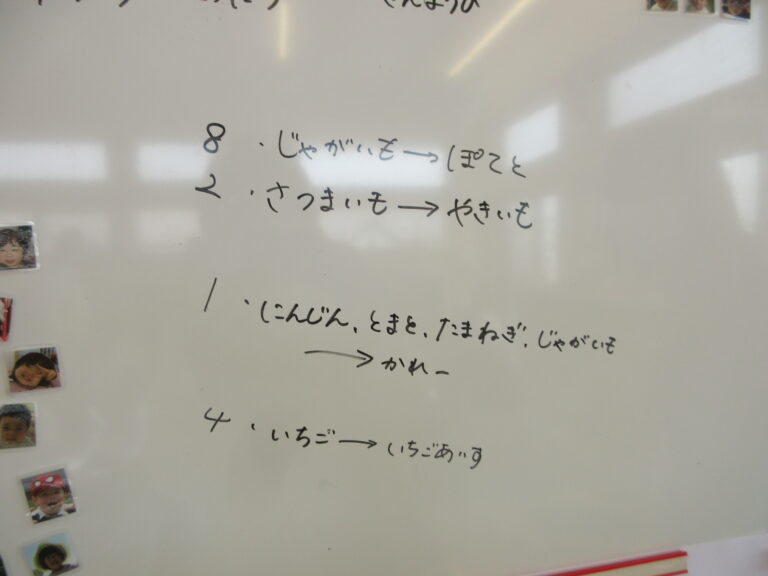 8 ・じゃがいも→ぽてと
2 ・さつまいも→やきいも
1 ・にんじん、とまと、たまねぎ、じゃがいも
→かれー
4 ・いちご→いちごあいす